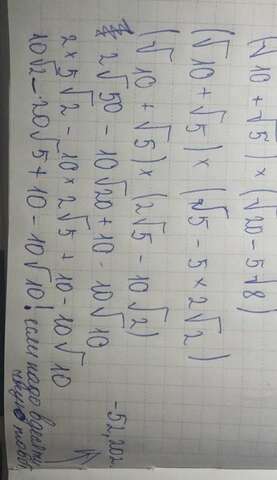 (√10 + √5) × (√20 - 5√8)
(√10 + √5) × (√5 - 5 × 2√2)
(√10 + √5) × (2√5 - 10√2)
2√50 - 10√20 + 10 - 10√10
2 × 5√2 - 10 × 2√5 + 10 - 10√10
10√2 - 20√5 + 10 - 10√10 ! если надо в
-52,202